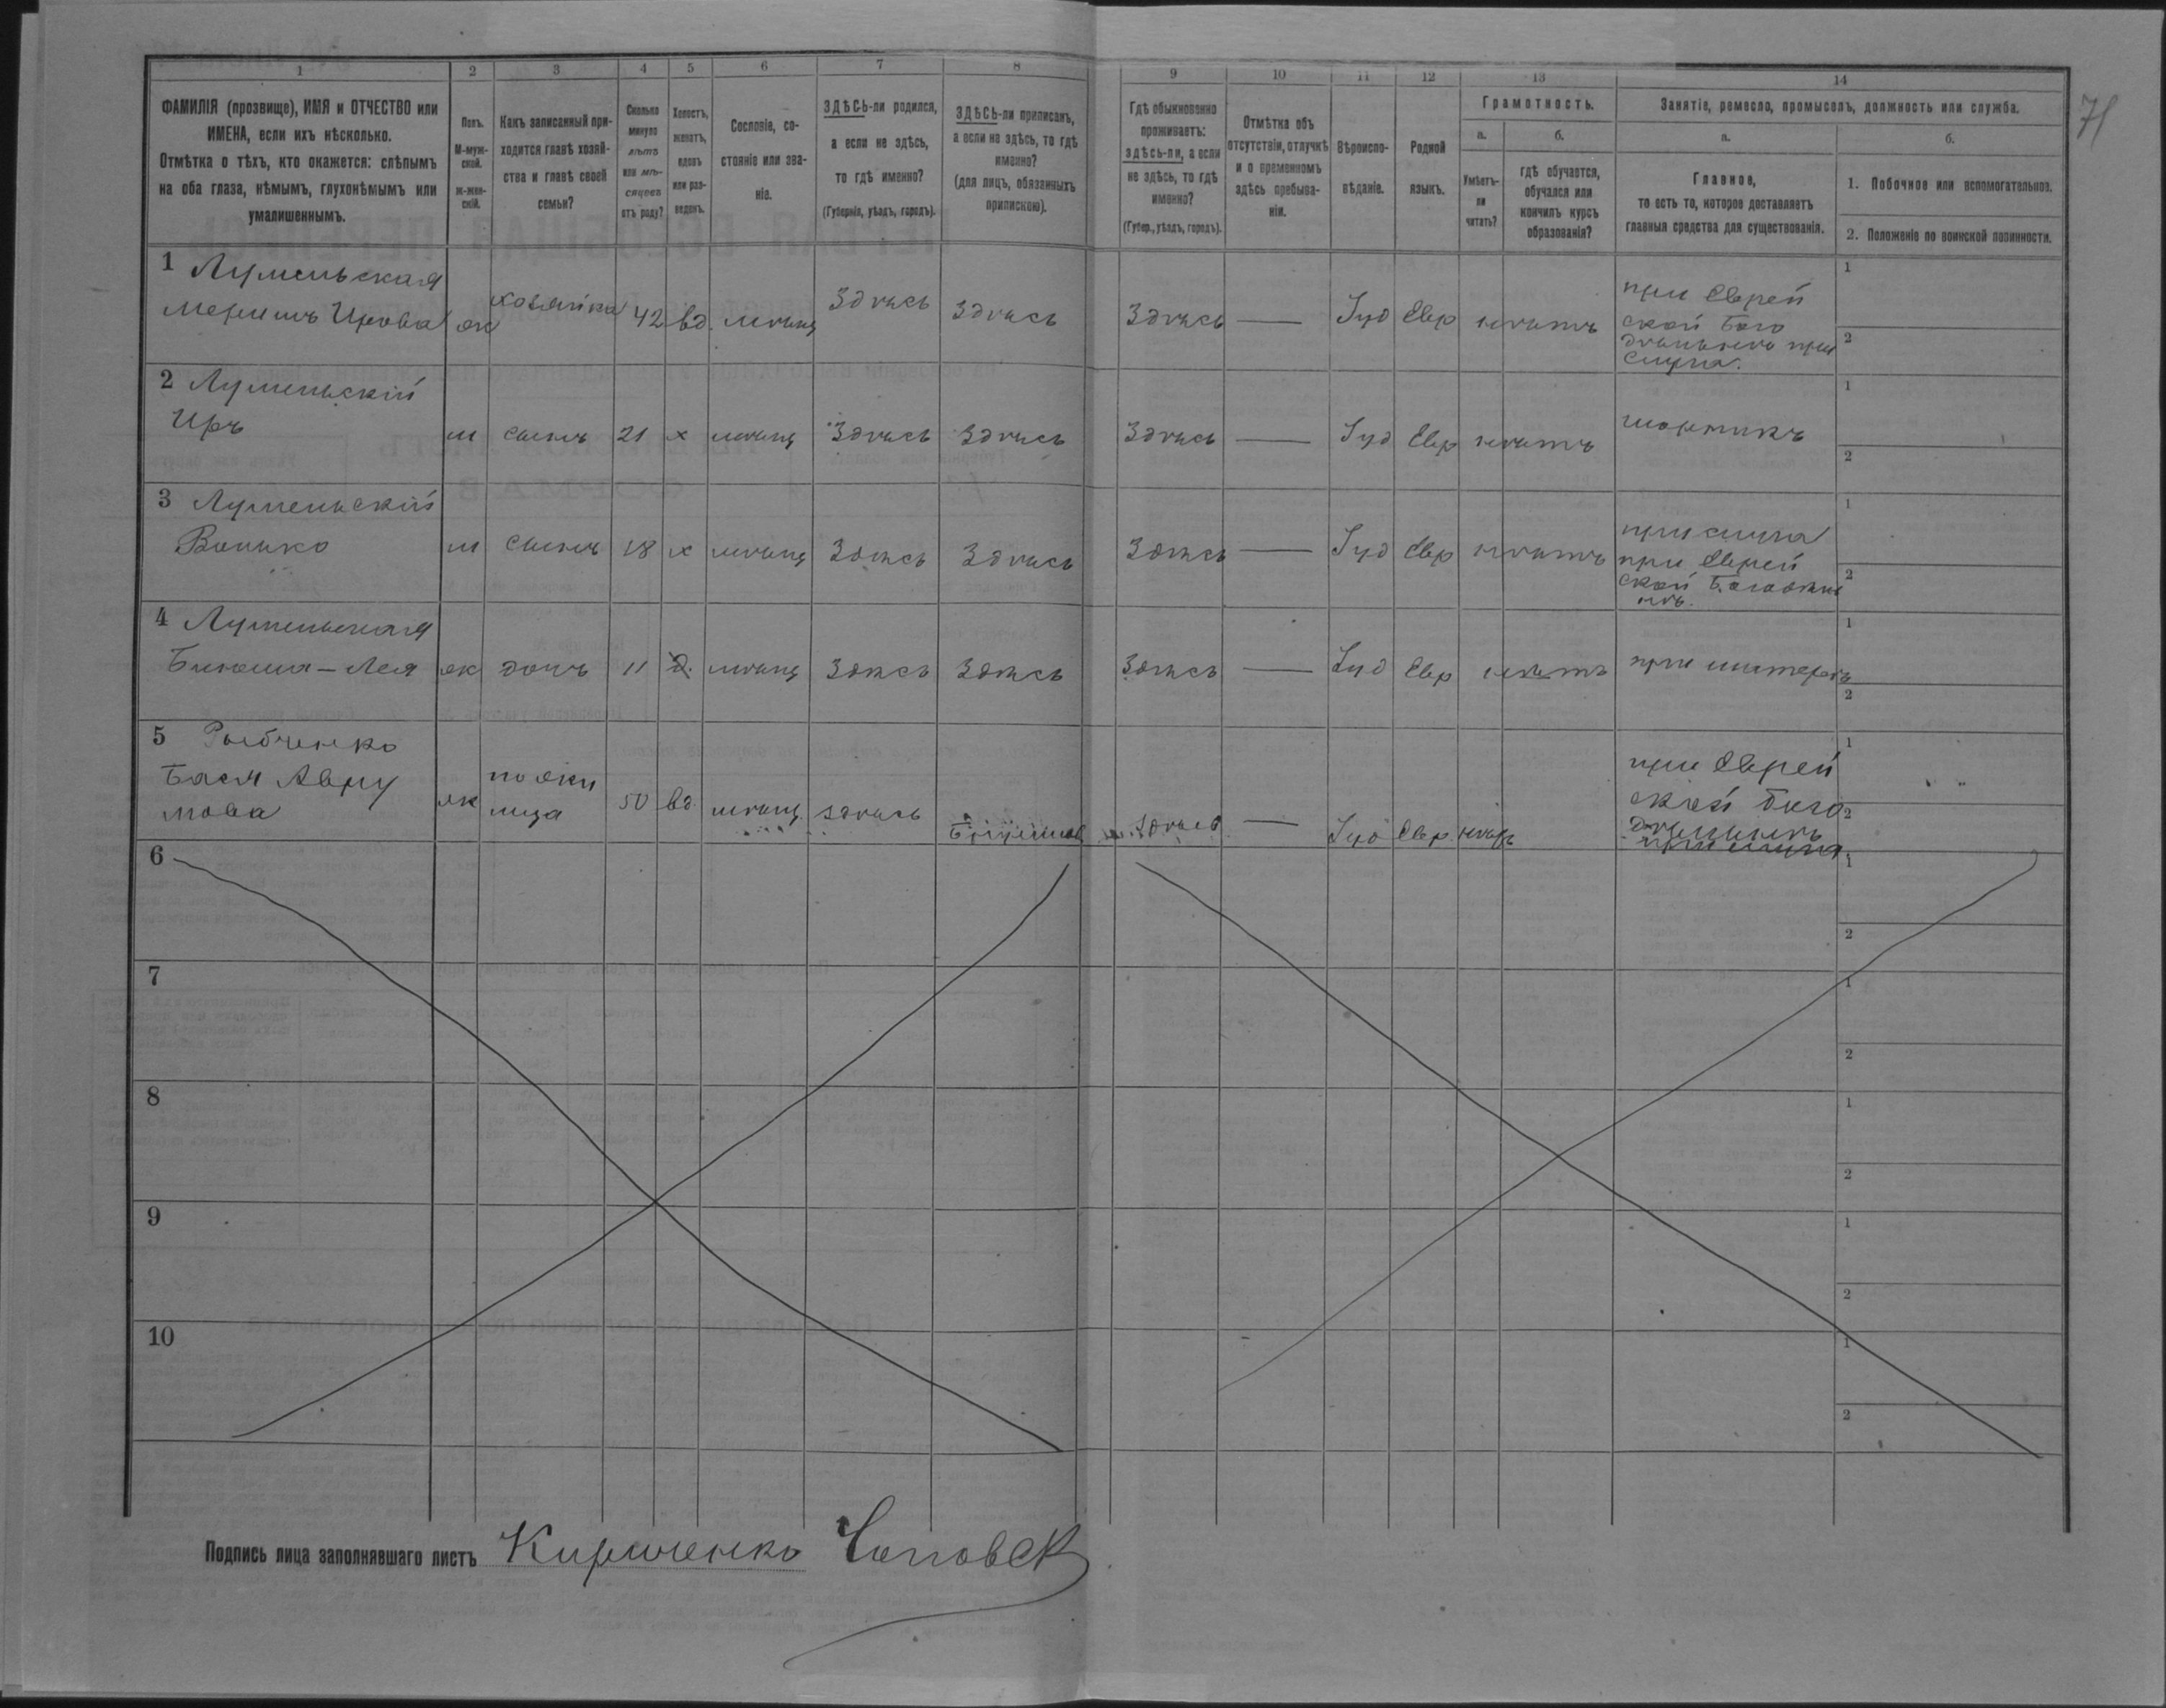 71
1 2 3 4 5 6 7 8 9 10 11 12 13 14
ФАМИЛІЯ (прозвище), ИМЯ и ОТЧЕСТВО или
ИМЕНА, если ихъ нѣсколько.
Отмѣтка о тѣхъ, кто окажется: слѣпымъ
на оба глаза, нѣмымъ, глухонѣмымъ или
умалишеннымъ.
Полъ.
М-муж-
ской.
ж-жен-
скій.
Какъ записанный при-
ходится главѣ хозяй-
ства и главѣ своей
семьи?
Сколько
минуло
лѣтъ
или мѣ-
сяцевъ
отъ роду?
Холостъ,
женатъ,
вдовъ
или раз-
веденъ.
Сословіе, со-
стояніе или зва-
ніе.
ЗДѢСЬ-ли родился,
а если не здѣсь,
то гдѣ именно?
(Губернія, уѣздъ, городъ).
ЗДѢСЬ-ли приписанъ,
а если не здѣсь, то гдѣ
именно?
(для лицъ, обязанныхъ
припискою).
Гдѣ обыкновенно
проживаетъ:
здѣсь-ли, а если
не здѣсь, то гдѣ
именно?
(Губер., уѣздъ, городъ).
Отмѣтка объ
отсутствіи, отлучкѣ
и о временномъ
здѣсь пребыва-
ніи.
Вѣроиспо-
вѣданіе.
Родной
языкъ.
Грамотность.
а.
Умѣетъ-
ли
читать?
б.
гдѣ обучается,
обучался или
кончилъ курсъ
образованія?
Занятіе, ремесло, промыселъ, должность или служба.
а.
Главное,
то есть то, которое доставляетъ
главныя средства для существованія.
б.
1. Побочное или вспомогательное.
2. Положеніе по воинской повинности.
1
ж хозяйка 42 вд. мѣщ Здѣсь Здѣсь Здѣсь — Іуд Евр нѣтъ
при Еврей
ской Бого
дѣльнѣ при
слуга.
1
2
2
м сынъ 21 х мѣщ Здѣсь Здѣсь Здѣсь — Іуд Евр нѣтъ
1
2
3
м сынъ 18 х мѣщ Здѣсь Здѣсь Здѣсь — Іуд Евр нѣтъ
прислуга
при Еврей
ской Богодѣль
нѣ.
1
2
4
ж дочь 11 д. мѣщ Здѣсь Здѣсь Здѣсь — Іуд Евр нѣтъ при матери
1
2
5 Рыбченко
Бася Авру
мова
ж 50 вд. мѣщ. здѣсь здѣсь — Іуд Евр нѣтъ
при Еврей
ской бого
дѣльнѣ
прислуга.
1
2
6
1
2
7
1
2
8
1
2
9
1
2
10
1
2
Подпись лица заполнявшаго листъ